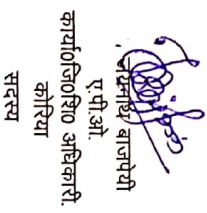 बाजपेयी
ए.पी.ओ.
कार्या०जि०शि० अधिकारी.
कोरिया
सदस्य